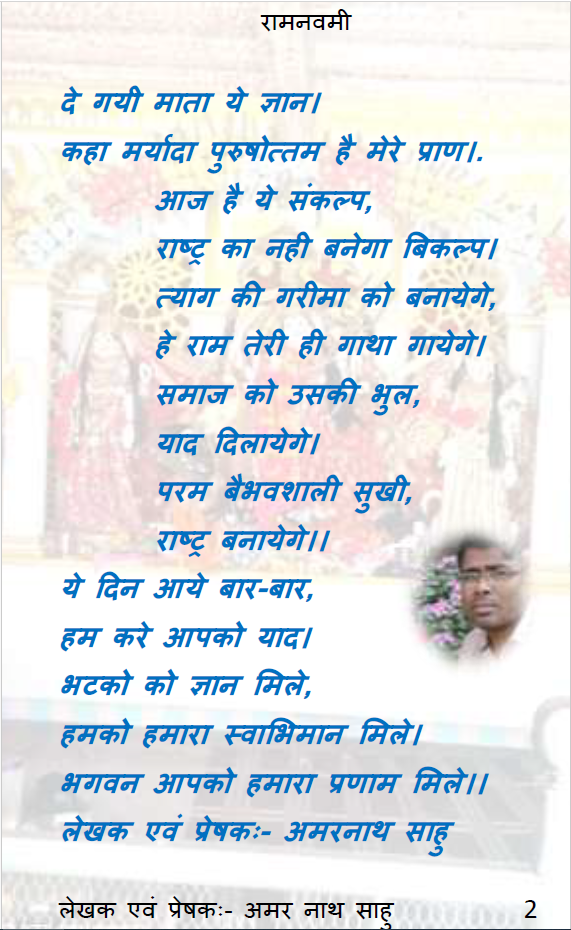 रामनवमी
दे गयी माता ये ज्ञान।
कहा मर्यादा पुरुषोत्तम है मेरे प्राण।.
आज है ये संकल्प,
राष्ट्र का नही बनेगा बिकल्प।
त्याग की गरीमा को बनायेगे,
हे राम तेरी ही गाथा गायेगे।
समाज को उसकी भुल,
याद दिलायेगे।
परम बैभवशाली सुखी,
राष्ट्र बनायेगे।।
ये दिन आये बार-बार,
हम करे आपको याद।
भटको को ज्ञान मिले,
हमको हमारा स्वाभिमान मिले।
भगवन आपको हमारा प्रणाम मिले।।
लेखक एवं प्रेषकः- अमरनाथ साहु
लेखक एवं प्रेषकः- अमर नाथ साहु 2